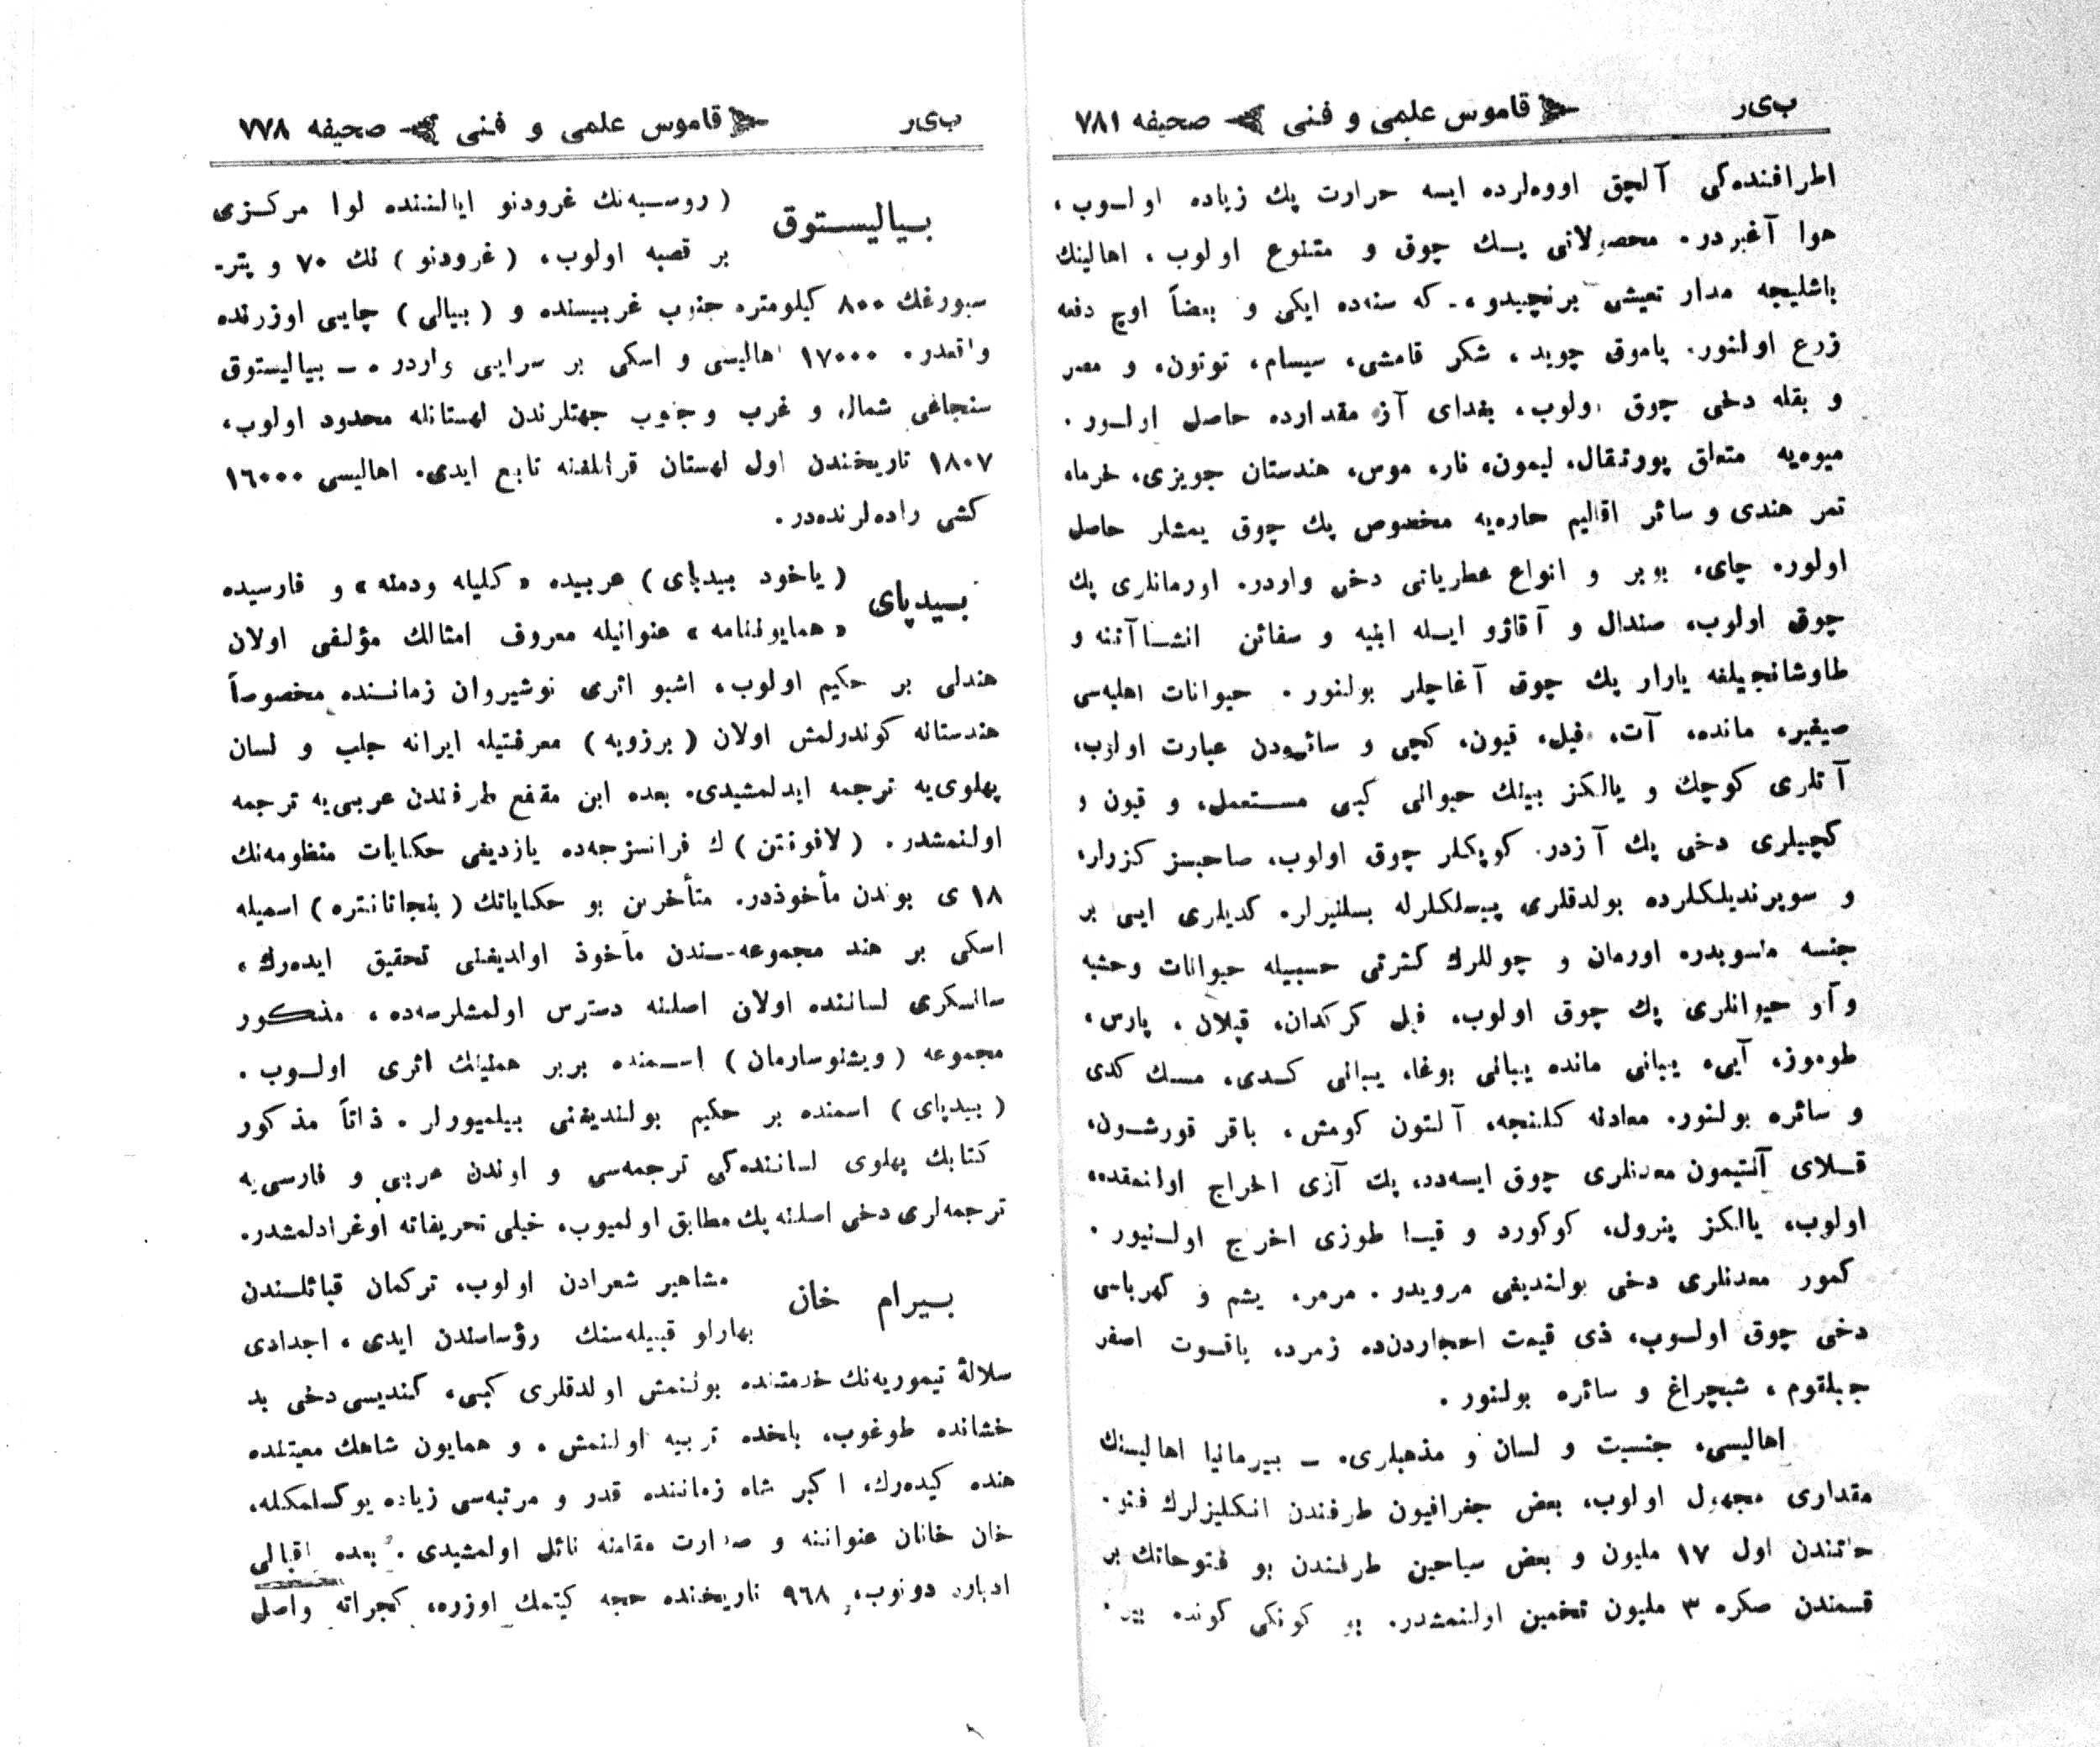 ب‌ی‌ر قاموس علمی و فنی صحیفه ۷۸۱
اطرافنده‌کی آلچق اووه‌لرده ایسه حرارت پك زیاده اولوب،
هوا آغیردر. محصولاتی پك چوق و متنوع اولوب، اهالینك
باشلیجه مدار تعیشی برنجیدو، ـ که سنه‌ده ایکی و بعضاً اوچ دفعه
زرع اولنور. پاموق چوید، شکر قامشی، سیسام، توتون، و مصر
و بقله دخی چوق اولوب، بغدای آز مقدارده حاصل اولور.
میوه‌یه متعلق پورتقال، لیمون، نار، موس، هندستان جویزی، خرما،
تمر هندی و سائر اقالیم حاره‌یه مخصوص پك چوق یمشلر حاصل
اولور. چای، بوبر و انواع عطریاتی دخی واردر. اورمانلری پك
چوق اولوب، صندال و آقاژو ایله ابنیه و سفائن انشاآتنه و
طاوشانجیلغه یارار پك چوق آغاچلر بولنور. حیوانات اهلیه‌سی
صیغیر، مانده، آت، فیل، قیون، کچی و سائره‌دن عبارت اولوب،
آتلری کوچك و یالکز بینك حیوانی کبی مستعمل، و قیون و
کچیلری دخی پك آزدر. کوپکلر چوق اولوب، صاحبسز کزرلر،
و سوپرندیلکلرده بولدقلری پیسلکلرله بسلنیرلر. کدیلری ایی بر
جنسه منسوبدر. اورمان و چوللرك کثرتی حسبیله حیوانات وحشیه
و آو حیوانلری پك چوق اولوب، فیل کرکدان، قپلان، پارس،
طوموز، آیی، یبانی مانده یبانی بوغا، یبانی کدی، مسك کدی
و سائره بولنور. معادنه کلنجه، آلتون کومش، باقر قورشون،
قلای آنتیمون معدنلری چوق ایسه‌ده، پك آزی اخراج اولنمقده
اولوب، یالکز پترول، کوکورد و قیا طوزی اخرج اولنیور.
کمور معدنلری دخی بولندیغی مرویدر. مرمر، یشم و کهرباسی
دخی چوق اولوب، ذی قیمت احجاردن‌ده زمرد، یاقوت اصفر
جبلقوم، شبچراغ و سائره بولنور.
اهالیسی، جنسیت و لسان و مذهبلری. ـ بیرمانیا اهالیسنك
مقداری مجهول اولوب، بعض جغرافیون طرفندن انکلیزلرك فتو-
حاتندن اول ۱۷ ملیون و بعض سیاحین طرفندن بو فتوحاتك بر
قسمندن صکره ۳ ملیون تخمین اولنمشدر. بو کونکی کونده بیر-
ب‌ی‌ر قاموس علمی و فنی صحیفه ۷۷۸
بیالیستوق (روسیه‌نك غرودنو ایالتنده لوا مرکزی
بر قصبه اولوب، (غرودنو) نك ۷۰ و پتر-
سبورغك ۸۰۰ کیلومتره جنوب غربیسنده و (بیالی) چایی اوزرنده
واقعدر. ۱۷۰۰۰ اهالیسی و اسکی بر سرایی واردر. ـ بیالیستوق
سنجاغی شمال و غرب و جنوب جهتلرندن لهستانله محدود اولوب،
۱۸۰۷ تاریخندن اول لهستان قراللغنه تابع ایدی. اهالیسی ۱۶۰۰۰
کشی راده‌لرنده‌در.
بیدپای (یاخود بیدبای) عربیده «کلیله ودمنه» و فارسیده
«همایوننامه» عنوانیله معروف امثالك مؤلفی اولان
هندلی بر حکیم اولوب، اشبو اثری نوشیروان زماننده مخصوصاً
هندستانه کوندرلمش اولان (برزویه) معرفتیله ایرانه جلب و لسان
پهلوی‌یه ترجمه ایدلمشیدی. بعده ابن مقفع طرفندن عربی‌یه ترجمه
اولنمشدر. (لافونتن) ك فرانسزجه‌ده یازدیغی حکایات منظومه‌نك
۱۸ ی بوندن مأخوذدر. متأخرین بو حکایاتك (پنجاتانتره) اسمیله
اسکی بر هند مجموعه‌سندن مأخوذ اولدیغنی تحقیق ایده‌رك،
سانسکری لساننده اولان اصلنه دسترس اولمشلرسه‌ده، مذکور
مجموعه (ویشنوسارمان) اسمنده بربر همنینك اثری اولوب.
(بیدپای) اسمنده بر حکیم بولندیغنی بیلمیورلر. ذاتاً مذکور
کتابك پهلوی لساننده‌کی ترجمه‌سی و اوندن عربی و فارسی‌یه
ترجمه‌لری دخی اصلنه پك مطابق اولمیوب، خیلی تحریفاته اوغرادلمشدر.
بیرام خان مشاهیر شعرادن اولوب، ترکمان قبائلندن
بهارلو قبیله‌سنك رؤساسندن ایدی، اجدادی
سلالهٔ تیموریه‌نك خدمتنده بولنمش اولدقلری کبی، کندیسی دخی بد
خشانده طوغوب، بلخده تربیه اولنمش، و همایون شاهك معیتنده
هنده کیده‌رك، اکبر شاه زماننده قدر و مرتبه‌سی زیاده یوکسلمکله،
خان خانان عنواننه و صدارت مقامنه نائل اولمشیدی. بعده اقبالی
ادباره دونوب، ۹۶۸ تاریخنده حجه کیتمك اوزره، کجراته واصل